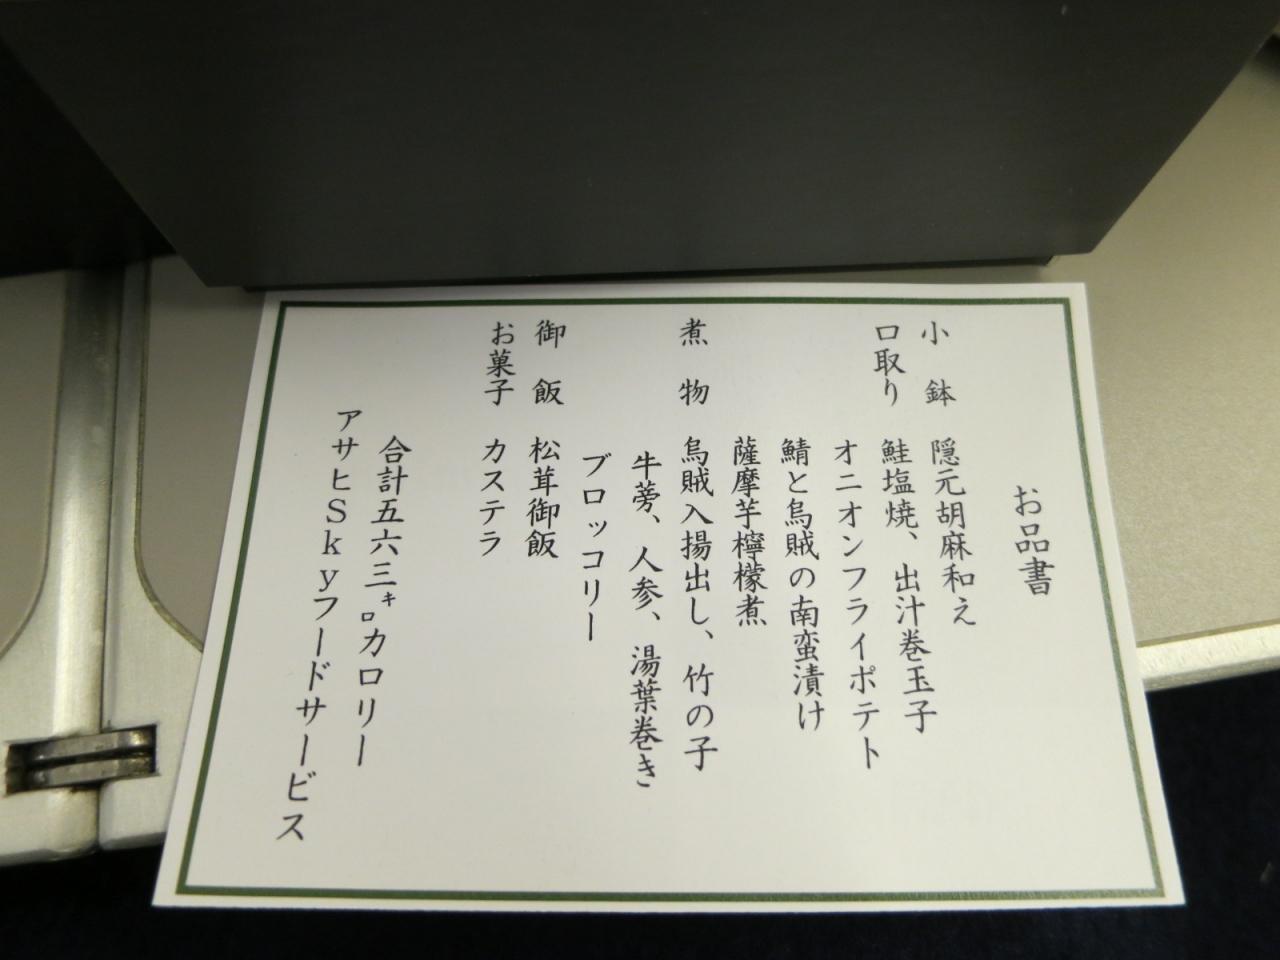 お品書
小　鉢　隠元胡麻和え
口取り　鮭塩焼、出汁巻玉子
オニオンフライポテト
鯖と烏賊の南蛮漬け
薩摩芋檸檬煮
煮　物　烏賊入揚出し、竹の子
牛蒡、人参、湯葉巻き
ブロッコリー
御　飯　松茸御飯
お菓子　カステラ
合計五六三㌔カロリー
アサヒSkyフードサービス